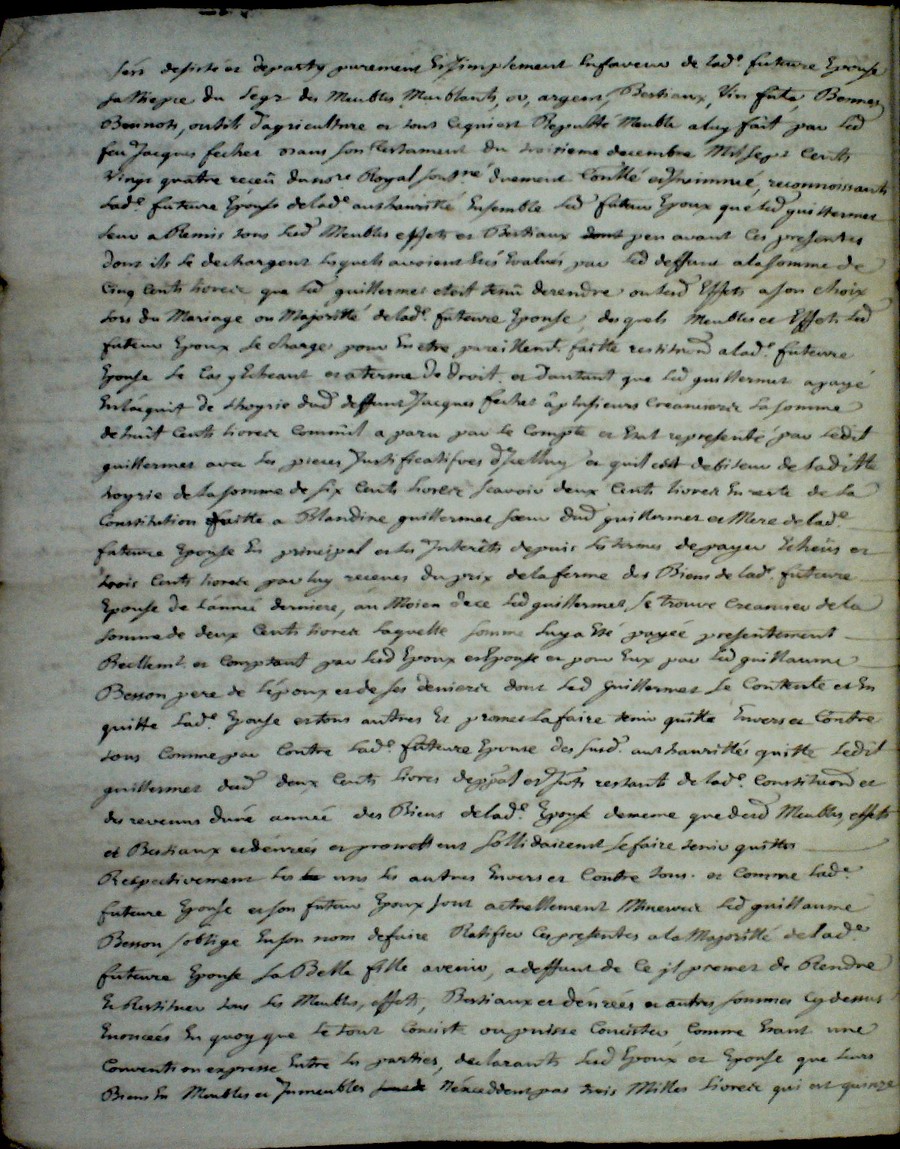 sers desisté et departy purement et simplement en faveur de lad.e future Epouse
sa Niepce du Legz des Meubles Meublants, or, argent, Bestiaux, Vin futé Bennes
Bennots, outils d'agriculture et tout ce qui est Reputté Meuble a luy fait par led
feu Jacques fechet dans son testament du troisieme decembre Mil sept cents
Vingt quatre receü du not.e Royal sous.né duement Contllé et Insinnué, reconnoissants
lad.e future Epouse de lad.e authauritté Ensemble led futeur Epoux que led guillermet
leur a Remis tous lesd Meubles effets et Bestiaux peu avant ces presentes
dont ils le dechargent lesquels avoient Etés Evalués par led deffunt a la somme de
Cinq Cents livres que led guillermet etoit tenû de rendre ou lesd Effets a son choix
lors du Mariage ou Majoritté de lad.e future Epouse, desquels Meubles et Effets led
futeur Epoux se charge pour En etre pareillem.t faitte restitu.on a lad.e future
Epouse le Cas y Echeant et a terme de droit. et d'autant que led guillermet a payé
En l'acquit de l'hoyrie dud deffunt Jacques fechet à plusieurs Creanciers la somme
de huit Cents livres Comm'il a paru par le Compte et Etat representé par ledit
guillermet avec les pieces Justificatifves d'Jcelluy et quil est debiteur de laditte
hoyrie de la somme de six Cents livres scavoir deux Cents livres En reste de la
Constitution faitte a Blandine guillermet sœur dud guillermet et Mere de lad.e
future Epouse En principal et les Interêts depuis les termes de payer Echeüs et
trois Cents livres par luy receues du prix de la ferme des Biens de lad.e future
Epouse de l'année derniere, au Moien de ce led guillermet se trouve Creancier de la
somme de deux Cents livres laquelle somme luy a Eté payée presentement
Reellem.t et Comptant par lesd Epoux et Epouse et pour Eux par led guillaume
Besson pere de l'époux et de ses deniers dont led guillermet se Contente et En
quitte lad.e Epouse et tous autres Et promet la faire tenir quitte Envers et Contre
tous Comme par Contre lad.e future Epouse des susd. authaurittés quitte ledit
guillermet dud deux Cents livres de ppal et Jnts restants de lad.e Constitu.on et
des revenus d'une année des Biens de lad.e Epouse de meme que desd Meubles, effets
et Bestiaux et denrées et promettent Sollidairemt se faire tenir quittes
Respectivement les uns les autres Envers et Contre tous. et Comme lad.e
future Epouse et son futeur Epoux sont actuellement Mineurs led guillaume
Besson s'oblige En son nom de faire Ratifier Ces presentes a la Majoritté de lad.e
future Epouse sa Belle fille avenir, a deffaut de Ce jl promet de Rendre
Et Restituer tous les Meubles, effets, Bestiaux et dénrées et autres sommes Cy dessus
Enoncées En quoy que le tout Consiste ou puisse Consister Comme Etant une
Convention expresse Entre les parties, declarants lesd Epoux et Epouse que leurs
Biens En Meubles et Jmmeubles n'exceddent pas trois Milles livres qui est quinze